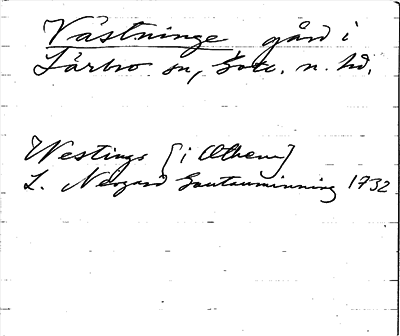 Västninge gård i
Lärbro sn, Gotl. n. hd.
Westings [i Othem]
L. Neogard Gautauminning 1732